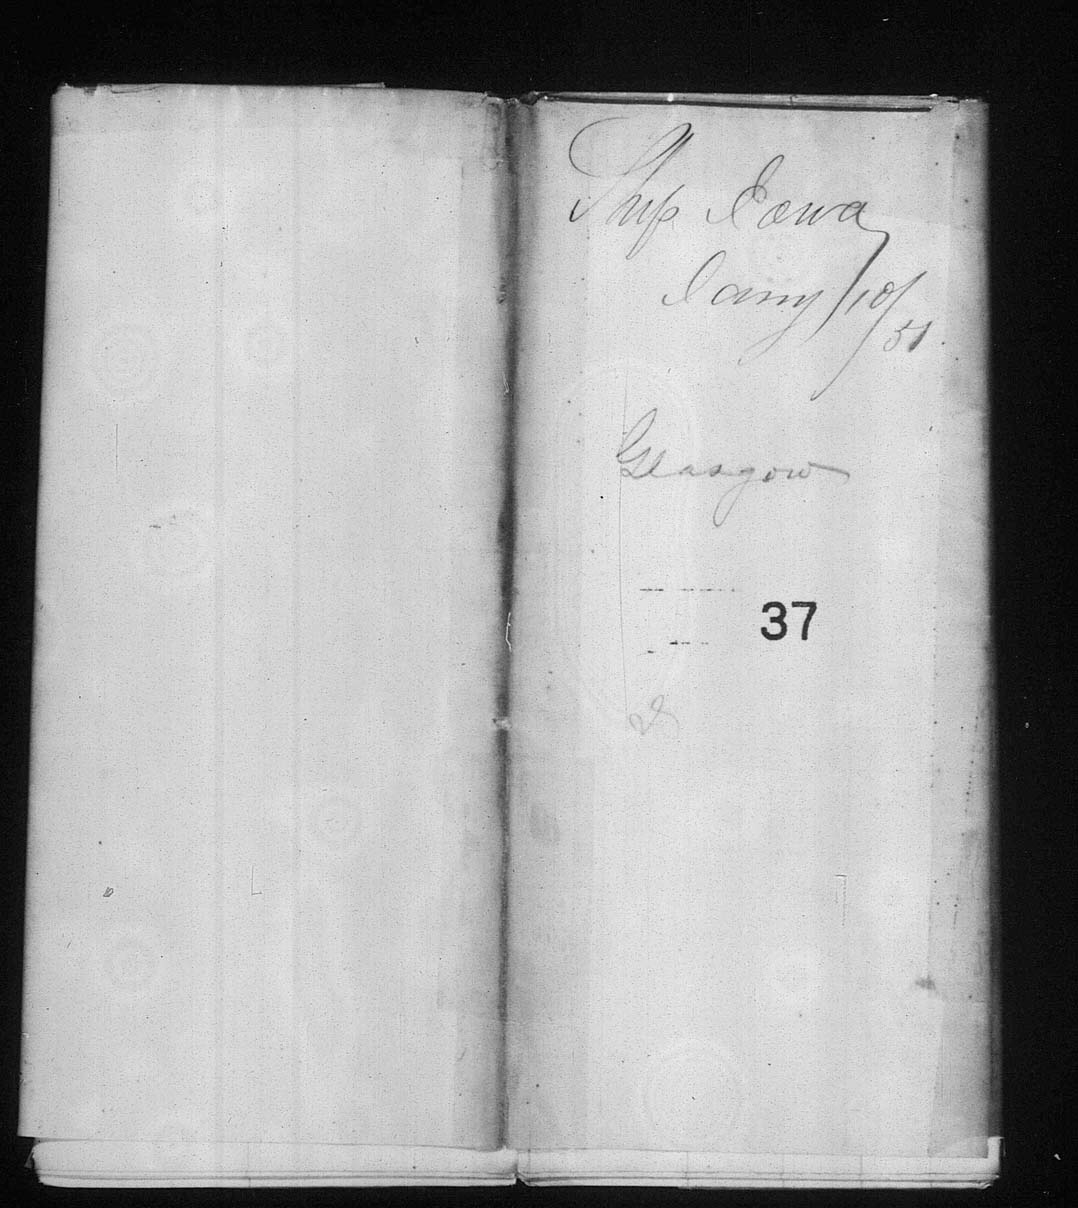 Ship Iowa
Jany 10/51
Glasgow
37